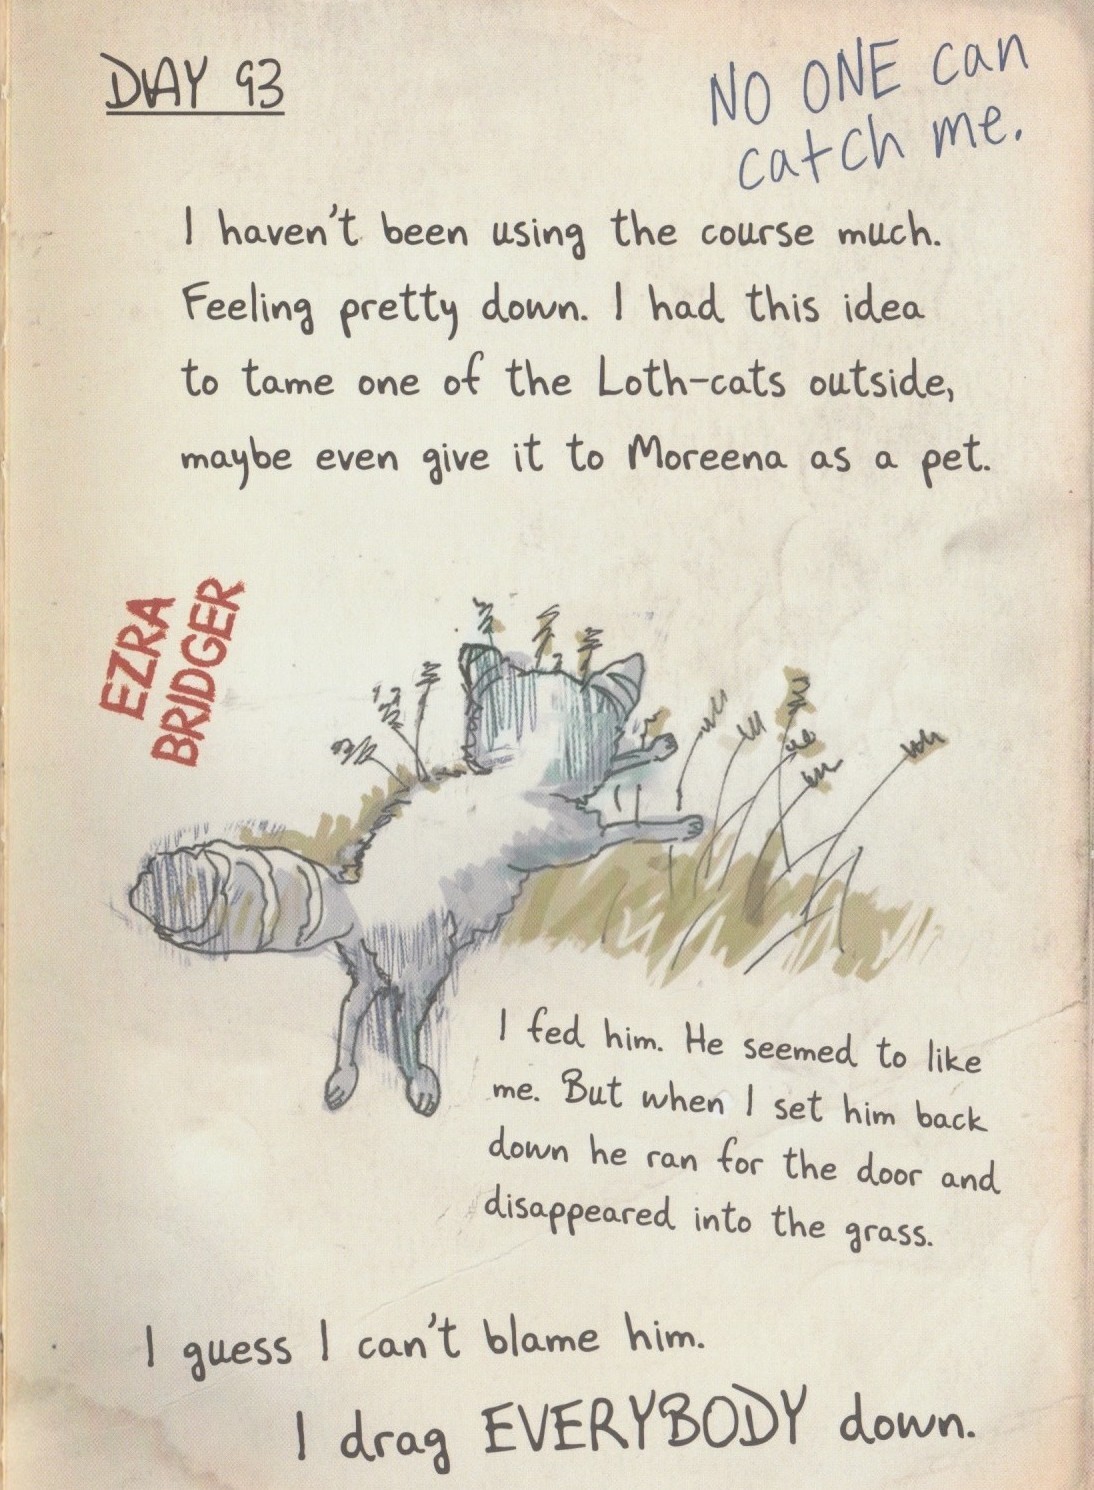 DAY 93
NO ONE can
catch me.
I haven't been using the course much.
Feeling pretty down. I had this idea
to tame one of the Loth-cats outside,
maybe even give it to Moreena as a pet.
EZRA
BRIDGER
I fed him. He seemed to like
me. But when I set him back
down he ran for the door and
disappeared into the grass.
I guess I can't blame him.
I drag EVERYBODY down.